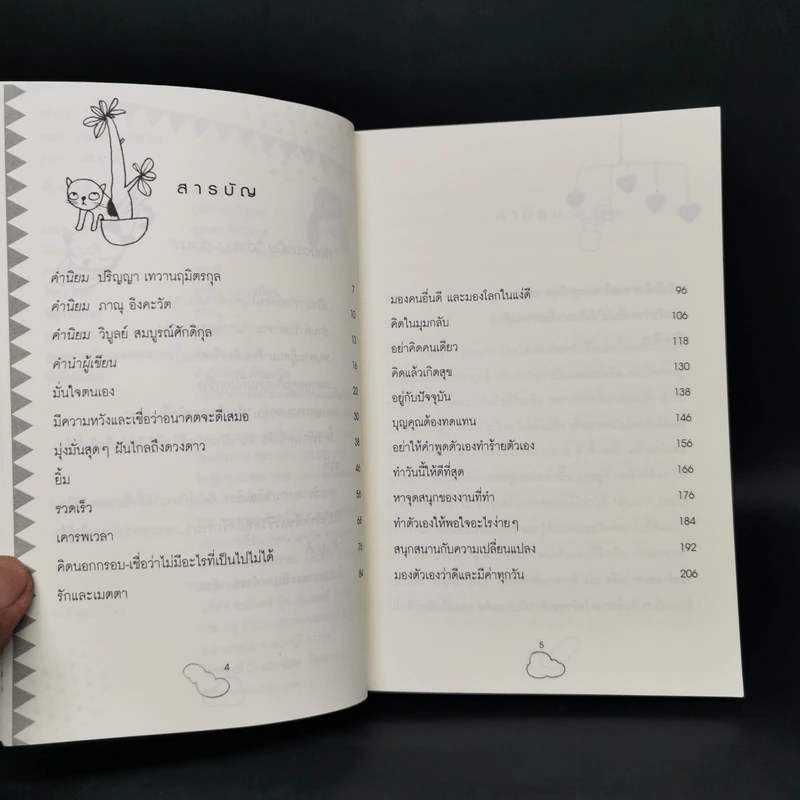 สารบัญ
คำนิยม ปริญญา เทวานฤมิตรกุล 7
คำนิยม ภาณุ อิงคะวัต 10
คำนิยม วิบูลย์ สมบูรณ์ศักดิกุล 13
คำนำผู้เขียน 16
มั่นใจตนเอง 22
มีความหวังและเชื่อว่าอนาคตจะดีเสมอ 30
มุ่งมั่นสุดๆ ฝันไกลถึงดวงดาว 38
ยิ้ม 46
รวดเร็ว 56
เคารพเวลา 68
คิดนอกกรอบ-เชื่อว่าไม่มีอะไรที่เป็นไปไม่ได้ 76
รักและเมตตา 84
4
มองคนอื่นดี และมองโลกในแง่ดี 96
คิดในมุมกลับ 106
อย่าคิดคนเดียว 118
คิดแล้วเกิดสุข 130
อยู่กับปัจจุบัน 138
บุญคุณต้องทดแทน 146
อย่าให้คำพูดตัวเองทำร้ายตัวเอง 156
ทำวันนี้ให้ดีที่สุด 166
หาจุดสนุกของงานที่ทำ 176
ทำตัวเองให้พอใจอะไรง่ายๆ 184
สนุกสนานกับความเปลี่ยนแปลง 192
มองตัวเองว่าดีและมีค่าทุกวัน 206
5